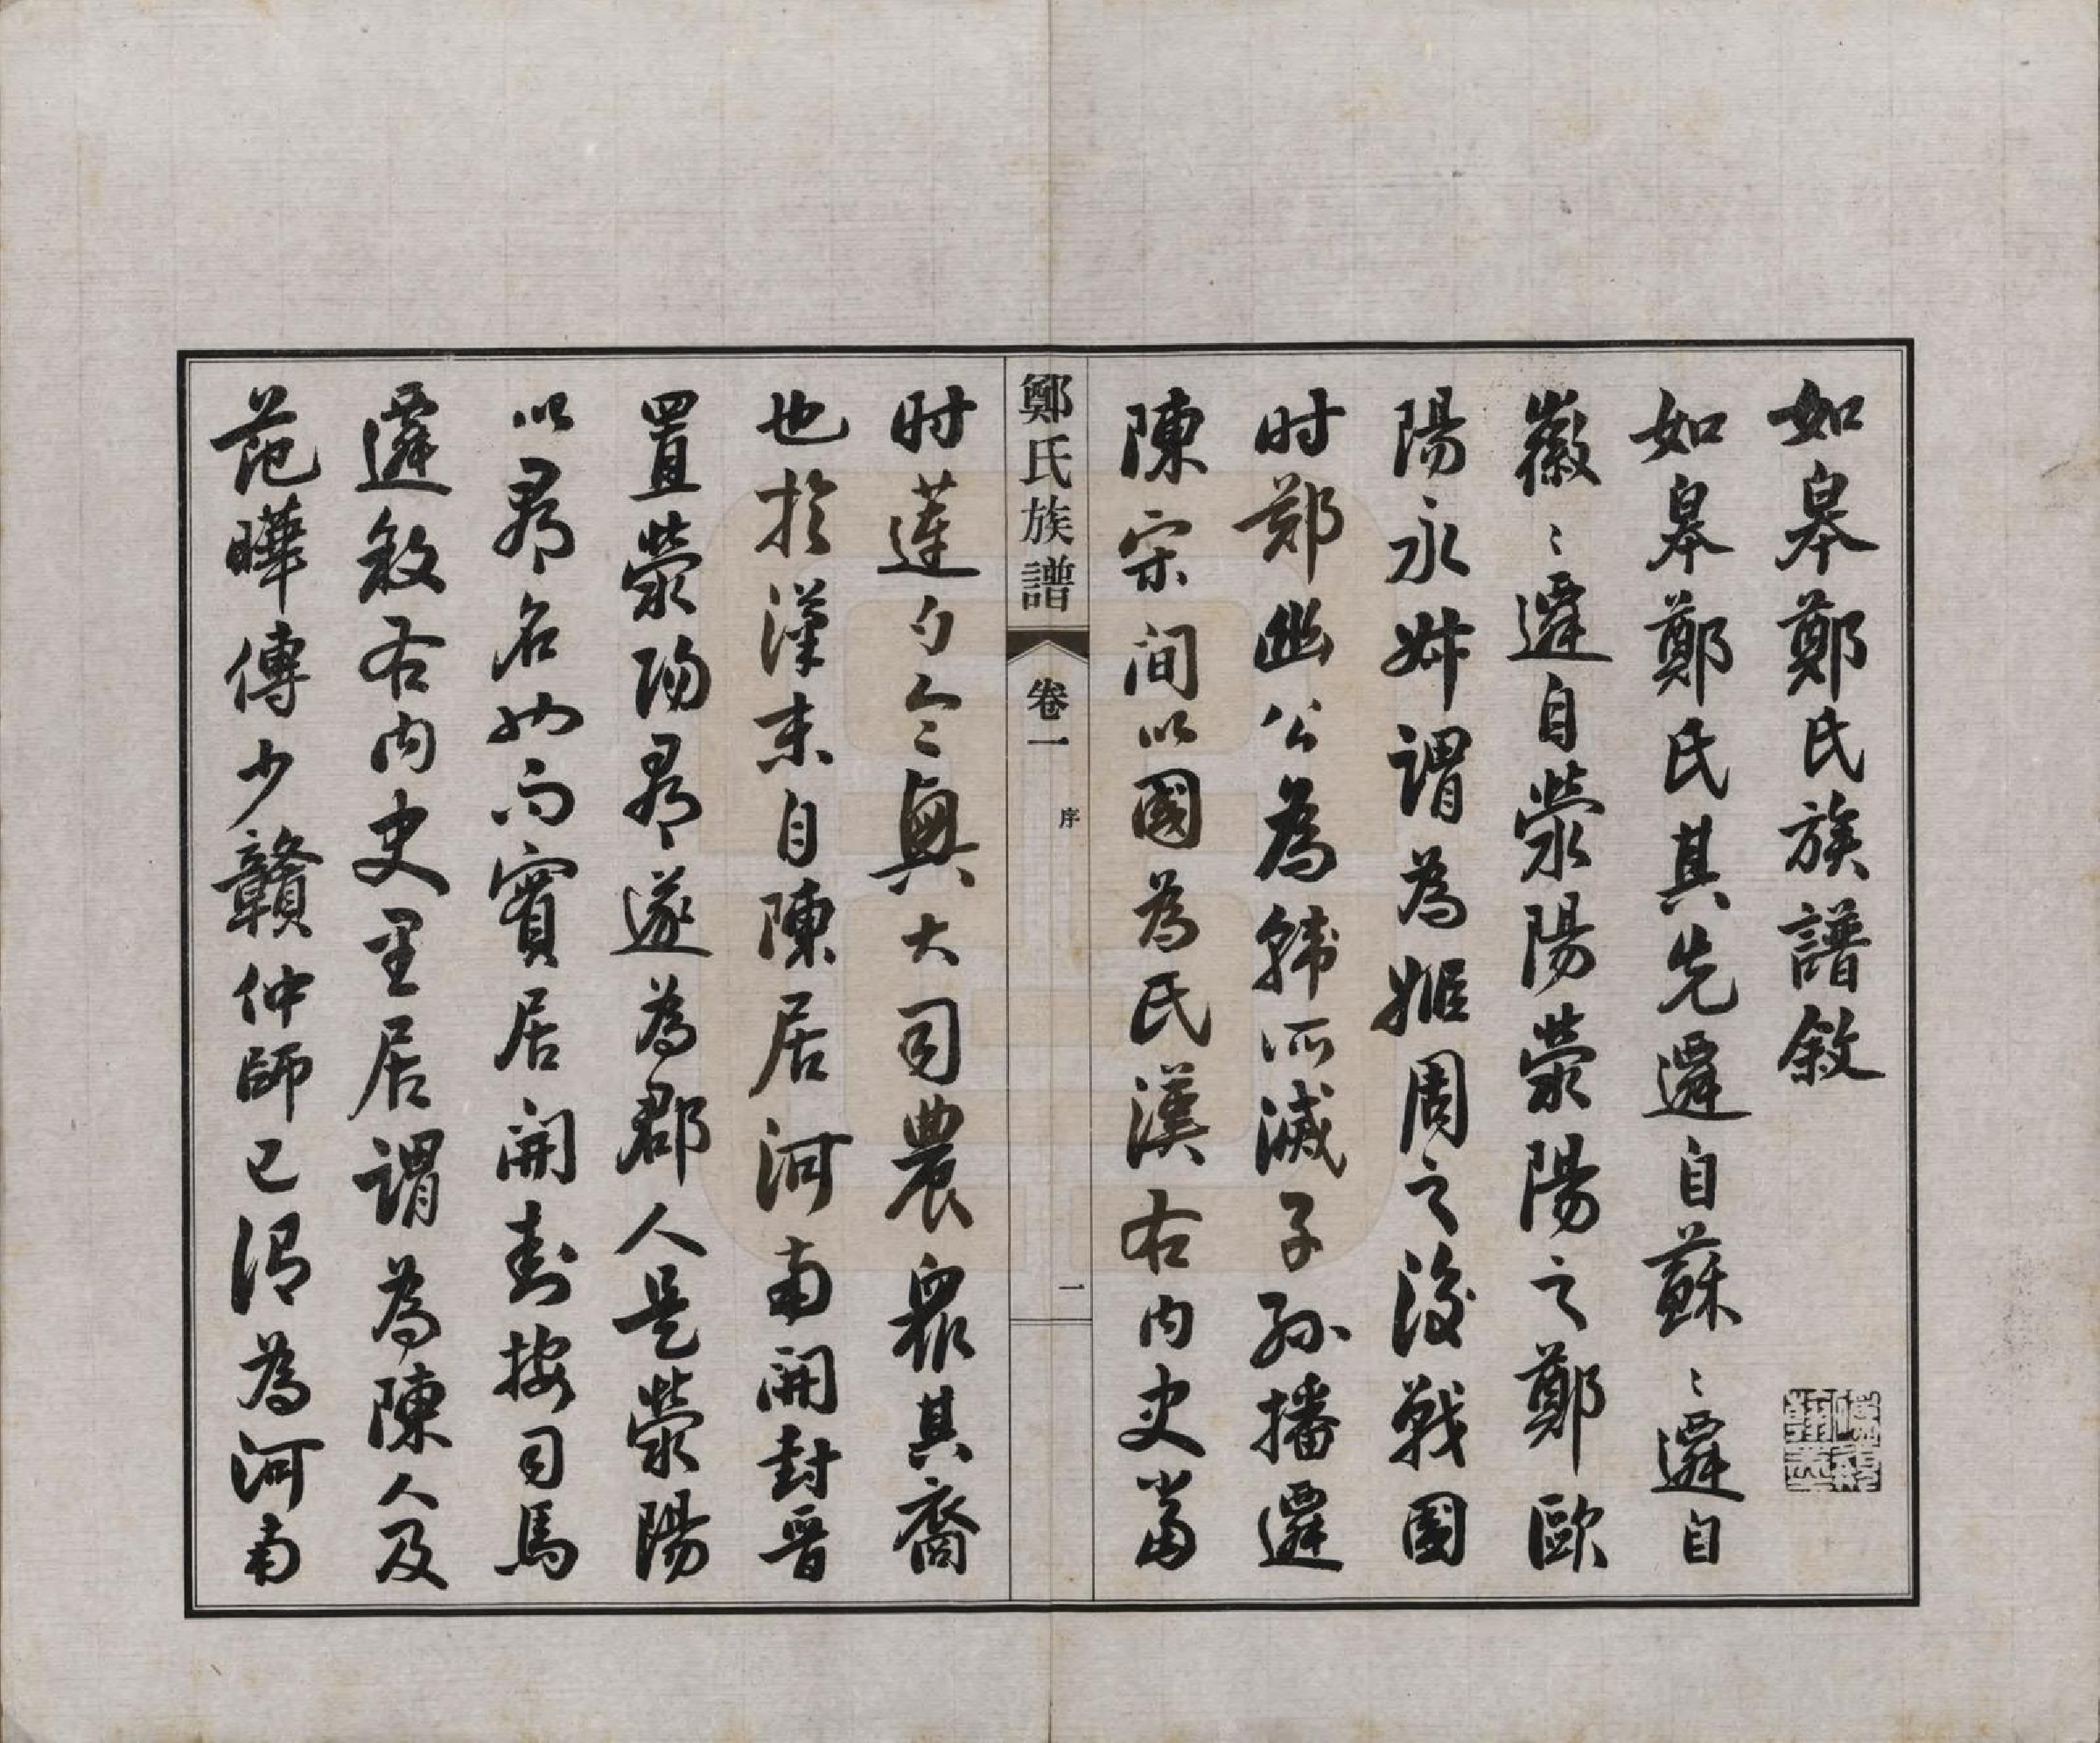 如皋鄭氏族譜敘
如皋鄭氏其先遷自蘇〻遷自
徽〻遷自滎陽滎陽之鄭歐
陽永叔謂為姬周之後戰國
时鄭幽公為韓所滅子孫播遷
陳宋间以國為氏漢右内史當
鄭氏族譜
卷一
序
一
时蓮勺令興大司農眾其裔
也於漢末自陳居河南開封晉
置滎陽郡遂為郡人是滎陽
以郡名始而實居開封按司馬
遷敘右内史里居謂為陳人及
范曄傳少贛仲師已谓為河南